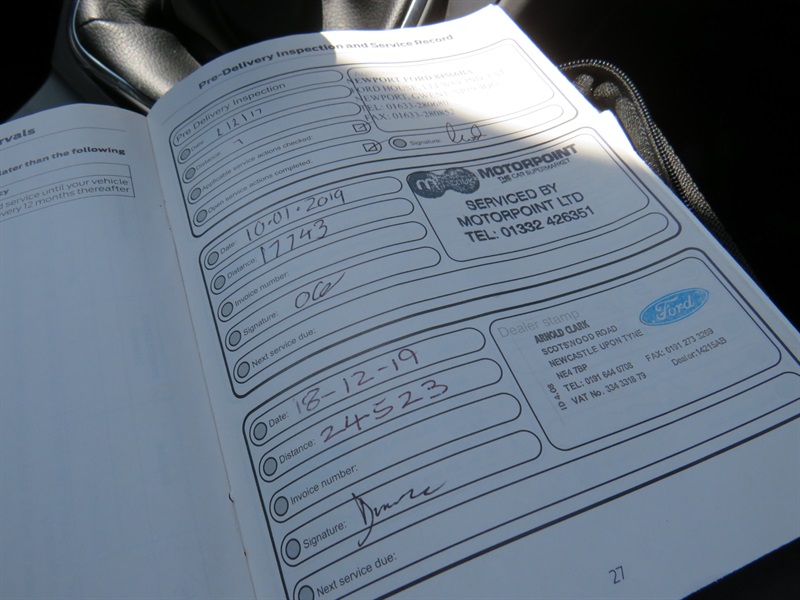 rvals
later than the following
cy
d service until your vehicle
very 12 months thereafter
Pre-Delivery Inspection and Service Record
Pre Delivery Inspection
Date: 2/2/17
Distance:
Applicable service actions checked:
Open service actions completed:
NEWPORT FORD
NEWPORT
TEL: 01633
FAX: 01633
Signature:
Date: 10.01.2019
Distance: 17743
Invoice number:
Signature:
Next service due:
MOTORPOINT
THE CAR SUPERMARKET
SERVICED BY
MOTORPOINT LTD
TEL: 01332 426351
Date: 18-12-19
Distance: 24523
Invoice number:
Signature:
Next service due:
Dealer stamp
Ford
ARNOLD CLARK
SCOTSWOOD ROAD
NEWCASTLE UPON TYNE
NE4 7BP
TEL: 0191 644 0703 FAX: 0191 273 3259
VAT No. 334 3318 79 Dealer:14215AB
27